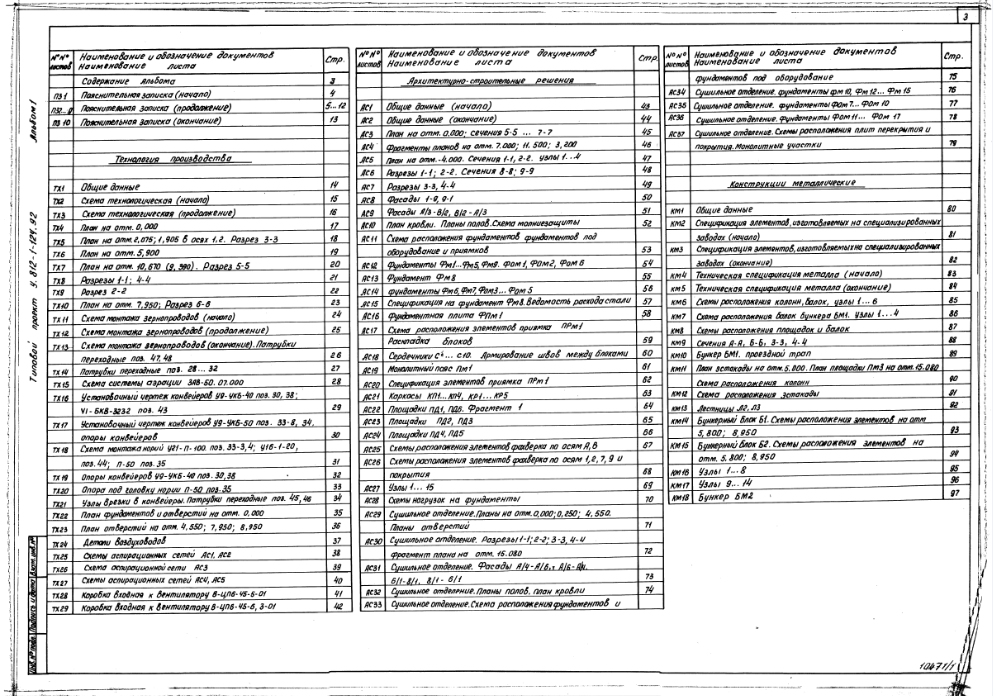 3
Альбом 1
Типовой проект У.812-1-124.92
№№ листов Наименование и обозначение документов Наименование листа Стр.
Содержание Альбома 3
ПЗ1 Пояснительная записка (начало) 4
Пояснительная записка (продолжение) 5...12
ПЗ 10 Пояснительная записка (окончание) 13
Технология производства
ТХ1 Общие данные 14
ТХ2 Схема технологическая (начало) 15
ТХ3 Схема технологическая (продолжение) 16
ТХ4 План на отм. 0,000 17
ТХ5 План на отм. 2,075; 1,906 в осях 1.2. Разрез 3-3 18
ТХ6 План на отм. 5,900 19
ТХ7 План на отм. 10,670 (9,390). Разрез 5-5 20
ТХ8 Разрезы 1-1; 4-4 21
ТХ9 Разрез 2-2 22
ТХ10 План на отм. 7,950; Разрез 6-6 23
ТХ11 Схема монтажа зернопроводов (начало) 24
ТХ12 Схема монтажа зернопроводов (продолжение) 25
ТХ13 Схема монтажа зернопроводов (окончание). Патрубки
переходные поз. 47,48 26
ТХ14 Патрубки переходные поз. 28...32 27
ТХ15 Схема системы аэрации ЗАВ-50.07.000 28
ТХ16 Установочный чертеж конвейеров У9-УКБ-40 поз. 30, 38;
У1-БКВ-3232 поз. 43 29
ТХ17 Установочный чертеж конвейеров У9-УКБ-50 поз. 33-8, 34,
опоры конвейеров 30
ТХ18 Схема монтажа норий У21-П-100 поз. 33-3,4; У16-1-20,
поз. 44; П-50 поз. 35 31
ТХ19 Опоры конвейеров У9-УКБ-40 поз. 30,38 32
ТХ20 Опора под головку нории П-50 поз. 35 33
ТХ21 Узлы врезки в конвейеры. Патрубки переходные поз. 45,46 34
ТХ22 План фундаментов и отверстий на отм. 0,000 35
ТХ23 План отверстий на отм. 4,550; 7,950; 8,950 36
ТХ24 Детали воздуховодов 37
ТХ25 Схемы аспирационных сетей АС1, АС2 38
ТХ26 Схема аспирационной сети АС3 39
ТХ27 Схемы аспирационных сетей АС4, АС5 40
ТХ28 Коробка входная к вентилятору В-ЦП6-45-6-01 41
ТХ29 Коробка входная к вентилятору В-ЦП6-45-6, 3-01 42
№№ листов Наименование и обозначение документов Наименование листа Стр.
Архитектурно-строительные решения
АС1 Общие данные (начало) 43
АС2 Общие данные (окончание) 44
АС3 План на отм. 0,000; сечения 5-5 ... 7-7 45
АС4 Фрагменты планов на отм. 7.000; 11.500; 3,200 46
АС5 План на отм. -4.000. Сечения 1-1, 2-2. Узлы 1...4 47
АС6 Разрезы 1-1; 2-2. Сечения 8-8; 9-9 48
АС7 Разрезы 3-3, 4-4 49
АС8 Фасады 1-9, 9-1 50
АС9 Фасады А/3-В/2, В/2-А/3 51
АС10 План кровли. Планы полов. Схема молниезащиты 52
АС11 Схема расположения фундаментов фундаментов под
оборудование и приямков 53
АС12 Фундаменты Фм1...Фм5, Фм9. Фом1, Фом2, Фом6 54
АС13 Фундамент Фм8 55
АС14 Фундаменты Фм6, Фм7, Фом3...Фом5 56
АС15 Спецификация на фундамент Фм8. Ведомость расхода стали 57
АС16 Фундаментная плита ФПм1 58
АС17 Схема расположения элементов приямка ПРм1
Раскладка блоков 59
АС18 Сердечники С1... С10. Армирование швов между блоками 60
АС19 Монолитный пояс Пм1 61
АС20 Спецификация элементов приямка ПРм1 62
АС21 Каркасы КП1...КП4, КР1...КР5 63
АС22 Площадки ПД1, ПД5. Фрагмент 1 64
АС23 Площадки ПД2, ПД3 65
АС24 Площадки ПД4, ПД5 66
АС25 Схемы расположения элементов фахверка по осям А, В 67
АС26 Схемы расположения элементов фахверка по осям 1, 2, 7, 9 и
покрытия 68
АС27 Узлы 1...15 69
АС28 Схема нагрузок на фундаменты 70
АС29 Сушильное отделение. Планы на отм. 0,000; 0,250; 4.550.
Планы отверстий 71
АС30 Сушильное отделение. Разрезы 1-1; 2-2; 3-3, 4-4
Фрагмент плана на отм. 15.080 72
АС31 Сушильное отделение. Фасады А/4-А/6, А/6-А/4,
6/1-8/1, 8/1-6/1 73
АС32 Сушильное отделение. Планы полов. План кровли 74
АС33 Сушильное отделение. Схема расположения фундаментов и
№№ листов Наименование и обозначение документов Наименование листа Стр.
фундаментов под оборудование 75
АС34 Сушильное отделение. Фундаменты Фм10, Фм12... Фм15 76
АС35 Сушильное отделение. Фундаменты Фом7... Фом10 77
АС36 Сушильное отделение. Фундаменты Фом11... Фом17 78
АС37 Сушильное отделение. Схемы расположения плит перекрытия и
покрытия. Монолитные участки 79
Конструкции металлические
КМ1 Общие данные 80
КМ2 Спецификация элементов, изготовляемых на специализированных
заводах (начало) 81
КМ3 Спецификация элементов, изготовляемых на специализированных
заводах (окончание) 82
КМ4 Техническая спецификация металла (начало) 83
КМ5 Техническая спецификация металла (окончание) 84
КМ6 Схемы расположения колонн, балок, узлы 1...6 85
КМ7 Схема расположения балок бункера БМ1. Узлы 1...4 86
КМ8 Схемы расположения площадок и балок 87
КМ9 Сечения А-А, Б-Б, 3-3, 4-4 88
КМ10 Бункер БМ1. проездной трап 89
КМ11 План эстакады на отм. 5.800. План площадки Пм3 на отм. 15.080
Схема расположения колонн 90
Схема расположения эстакады 91
КМ13 Лестницы Л2, Л3 92
КМ14 Бункерный блок Б1. Схемы расположения элементов на отм
5,800; 8,950 93
КМ15 Бункерный блок Б2. Схемы расположения элементов на
отм. 5.800; 8,950 94
КМ16 Узлы 1...8 95
КМ17 Узлы 9...14 96
КМ18 Бункер БМ2 97
Инв. № подл. Подпись и дата Взам. инв. №
10471/1